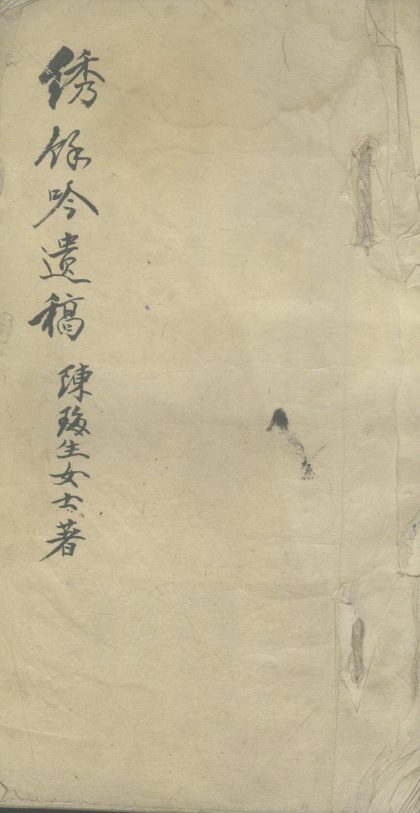 绣馀吟遗稿 陳璇生女士著